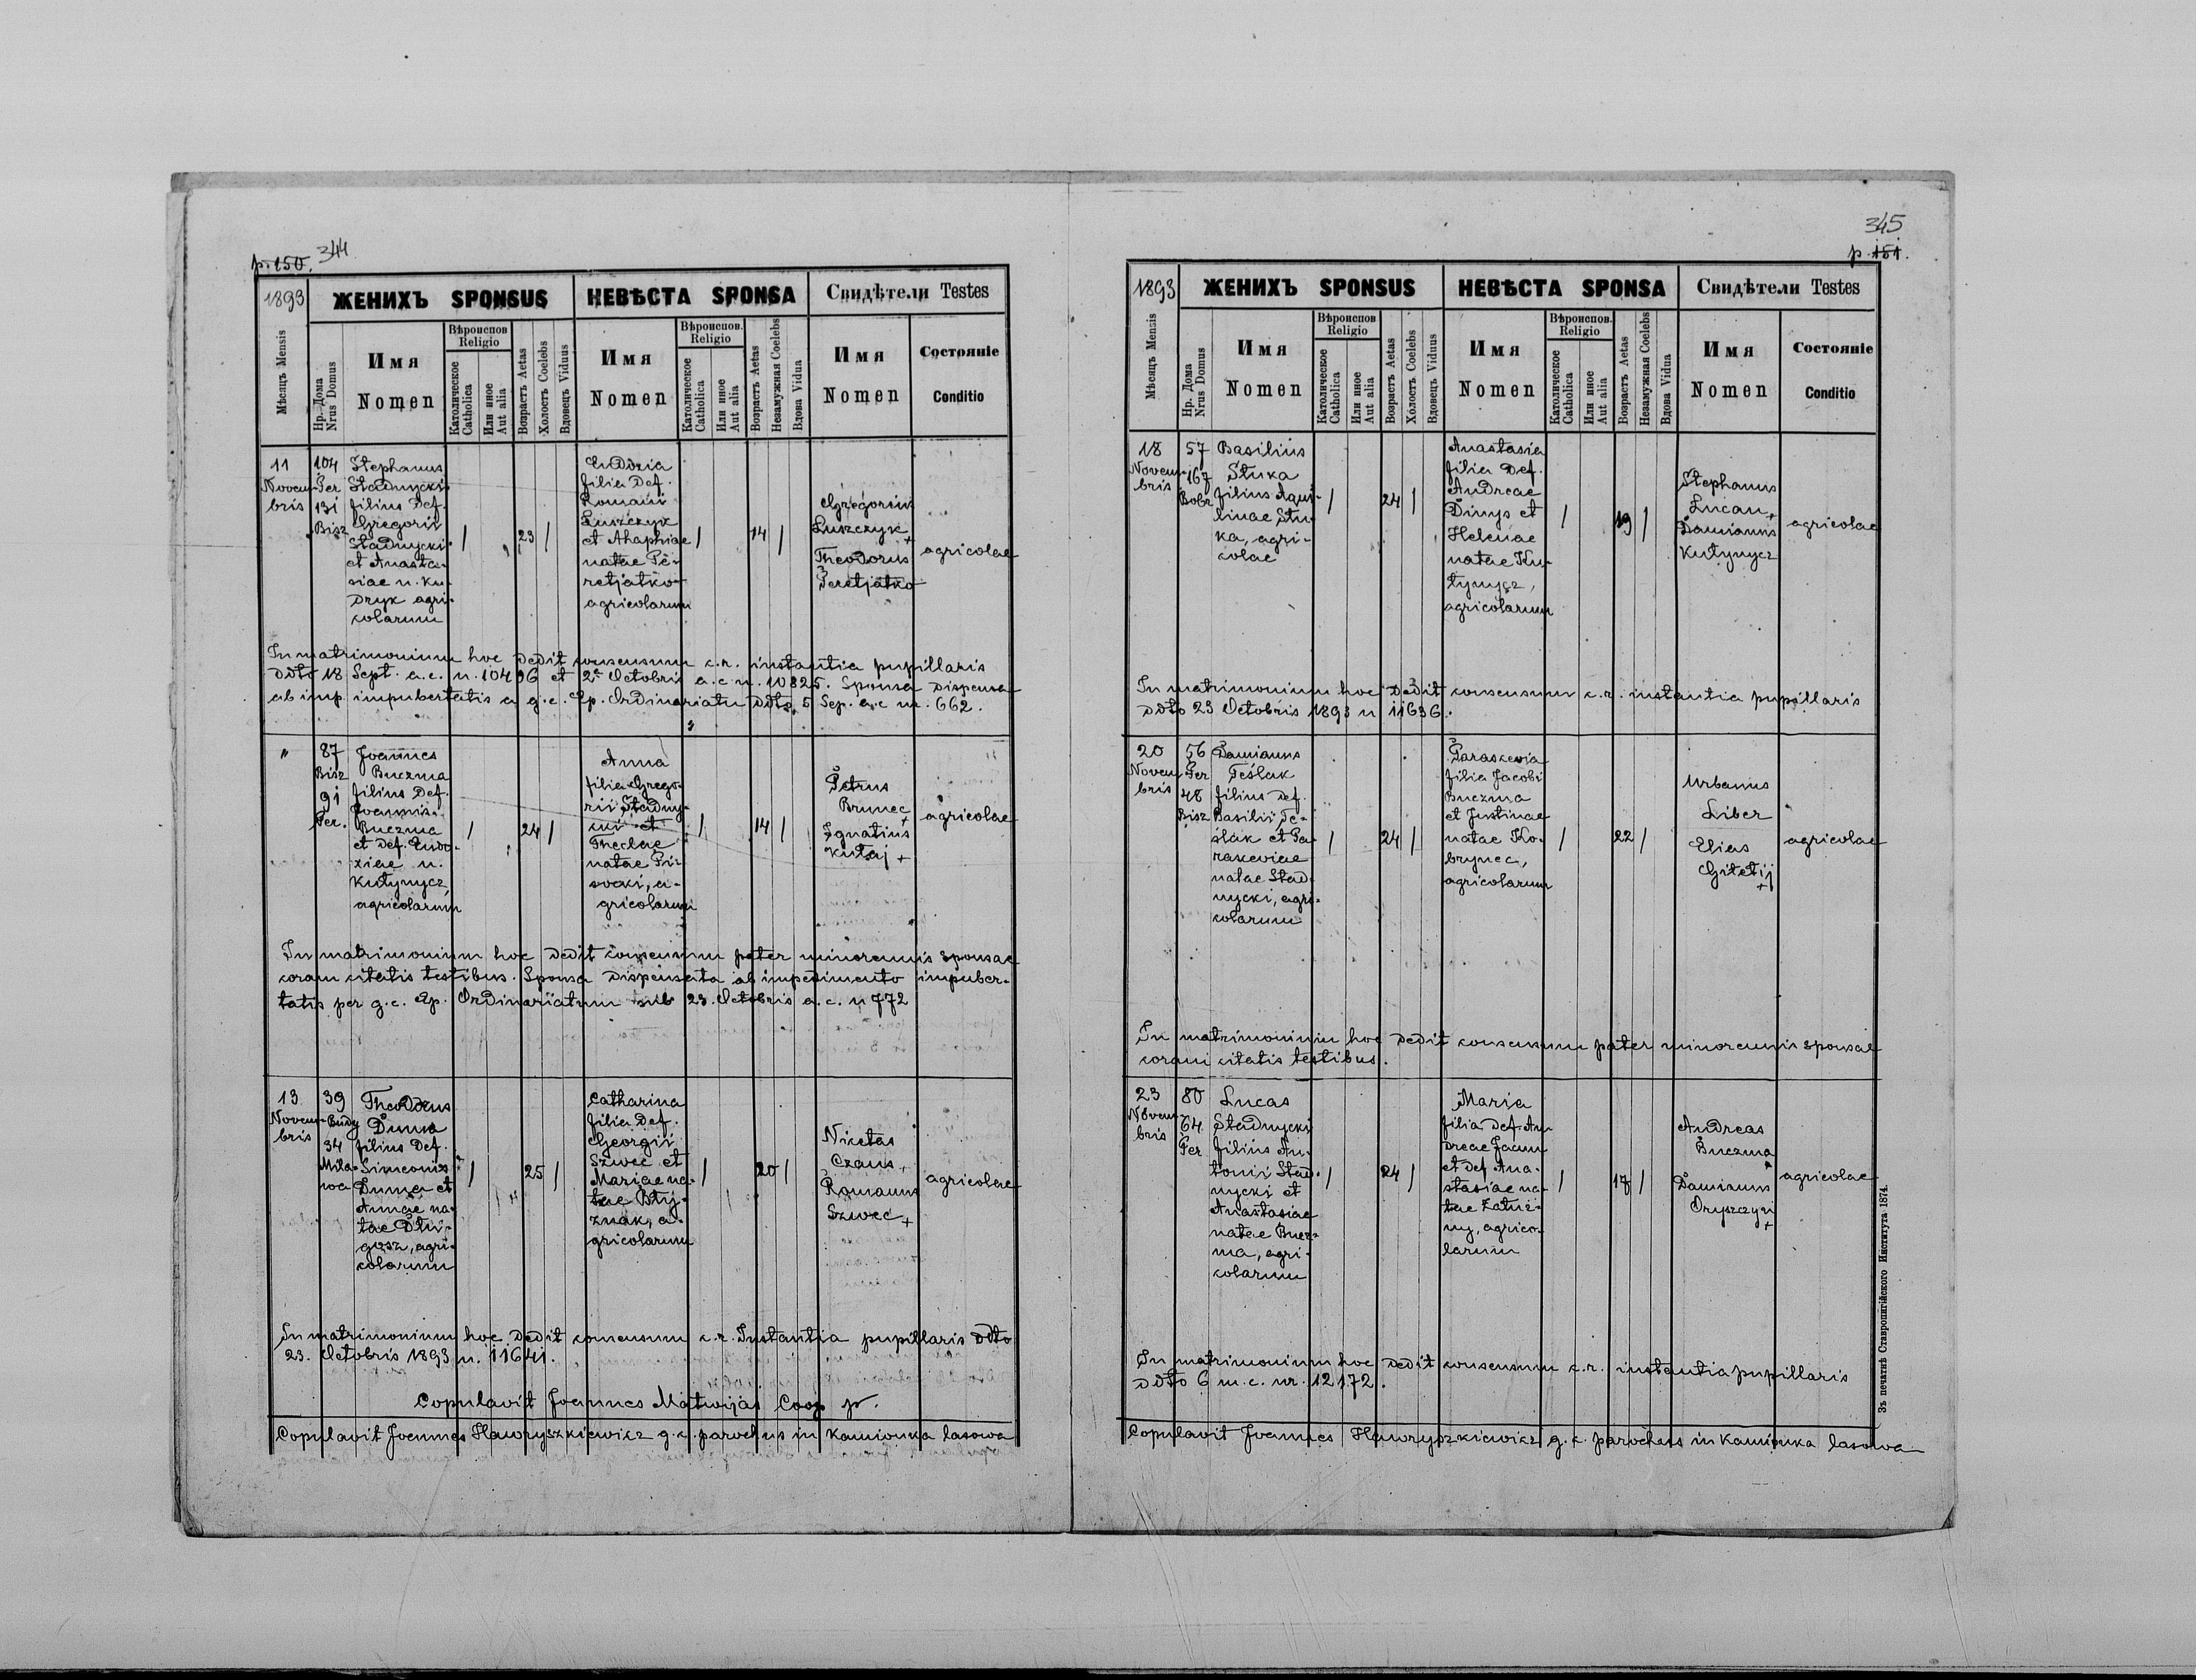 p. 150. 344
1893 ЖЕНИХЪ SPONSUS НЕВѢСТА SPONSA Свидѣтели Testes
Мѣсяцъ Mensis
Нр. Дома Nrus Domus
Имя Nomen
Вѣроиспов. Religio
Католическое Catholica
Или иное Aut alia
Возрастъ Aetas
Холостъ Coelebs
Вдовецъ Viduus
Имя Nomen
Вѣроиспов. Religio
Католическое Catholica
Или иное Aut alia
Возрастъ Aetas
Незамужная Coelebs
Вдова Vidua
Имя Nomen
Состояніе Conditio
11
Novem-
bris
104
Per
131
Bisz
Stephanus
Stadnycki
filius def.
Gregorii
Stadnycki
et Anasta-
siae n. Ku-
dryk agri-
colarum
/ 23 /
Eudoxia
filia def.
Romani
Łuszczyk
et Ahaphiae
natae Pe-
retjatko
agricolarum
/ 14 /
Gregorius
Łuszczyk +
Theodorus
Peretjatko
agricolae
In matrimonium hoc dedit consensum c.r. instantia pupillaris
ddto 18 Sept. a.c. n. 10496 et 2 Octobris a.c. n. 10825. Sponsa dispensa
ab imp. impubertatis a g.c. Ep. Ordinariatu ddto 5 Sep. a.c. nr. 662.
"
87
Bisz
91
Per.
Joannes
Buczma
filius def.
Joannis
Buczma
et def. Eudo-
xiae n.
Kutynycz
agricolarum
/ 24 /
Anna
filia Grego-
rii Stadny-
cki et
Theclae
natae Pri-
socki, a-
gricolarum
/ 14 /
Petrus
Brunec +
Ignatius
Kutaj +
agricolae
In matrimonium hoc dedit consensum pater minorennis sponsae
coram citatis testibus. Sponsa dispensata ab impedimento impuber-
tatis per g.c. Ep. Ordinariatum sub 23. Octobris a.c. n 772
13
Novem-
bris
39
Budy
34
Mila-
wa
Theodorus
Duma
filius def.
Simeonis
Duma et
Annae na-
tae Dłu-
gosz, agri-
colarum
/ 25 /
Catharina
filia def.
Georgii
Szwec et
Mariae na-
tae Bly-
znak, a-
gricolarum
/ 20 /
Nicetas
Czaus +
Romanus
Szwec +
agricolae
In matrimonium hoc dedit consensum c.r. Instantia pupillaris ddto
23. Octobris 1893 n. 11641.
Copulavit Joannes Matwijas Coop
Copulavit Joannes Hawryszkiewicz g.c. parochus in Kamionka lasowa
345
p. 151.
1893 ЖЕНИХЪ SPONSUS НЕВѢСТА SPONSA Свидѣтели Testes
Мѣсяцъ Mensis
Нр. Дома Nrus Domus
Имя Nomen
Вѣроиспов Religio
Католическое Catholica
Или иное Aut alia
Возрастъ Aetas
Холостъ Coelebs
Вдовецъ Viduus
Имя Nomen
Вѣроиспов. Religio
Католическое Catholica
Или иное Aut alia
Возрастъ Aetas
Незамужная Coelebs
Вдова Vidua
Имя Nomen
Состояніе Conditio
18
Novem-
bris
57
167
Bobr
Basilius
Stuka
filius Aqui-
linae Stu-
ka, agri-
colae
/ 24 /
Anastasia
filia def.
Andreae
Dinys et
Helenae
natae Ku-
tynycz,
agricolarum
/ 19 /
Stephanus
Lucan +
Damianus
Kutynycz
agricolae
In matrimonium hoc dedit consensum c.r. instantia pupillaris
ddto 23 Octobris 1893 n 11636.
20
Novem
bris
56
Per
48
Bisz
Damianus
Teślak
filius def.
Basilii Te-
ślak et Pa-
raseviae
natae Stad-
nycki, agri-
colarum
/ 24 /
Paraskevia
filia Jacobi
Buczma
et Justinae
natae Ko-
brynec,
agricolarum
/ 22 /
Urbanus
Liber
Elias
Gitetij +
agricolae
In matrimonium hoc dedit consensum pater minorennis sponsae
coram citatis testibus.
23
Novem
bris
80
64
Per
Lucas
Stadnycki
filius An-
tonii Stad-
nycki et
Anastasiae
natae Bucz-
ma, agri-
colarum
/ 24 /
Maria
filia def. An
dreae Jacun
et def. Ana-
stasiae na-
tae Zatuz-
ny, agrico-
larum
/ 17 /
Andreas
Buczma +
Damianus
Oryszczyn +
agricolae
In matrimonium hoc dedit consensum c.r. instantia pupillaris
ddto 6 m.c. nr. 12172.
Copulavit Joannes Hawryszkiewicz g.c. parochus in Kamionka lasowa
Зъ печатнѣ Ставропигійского Института 1874.